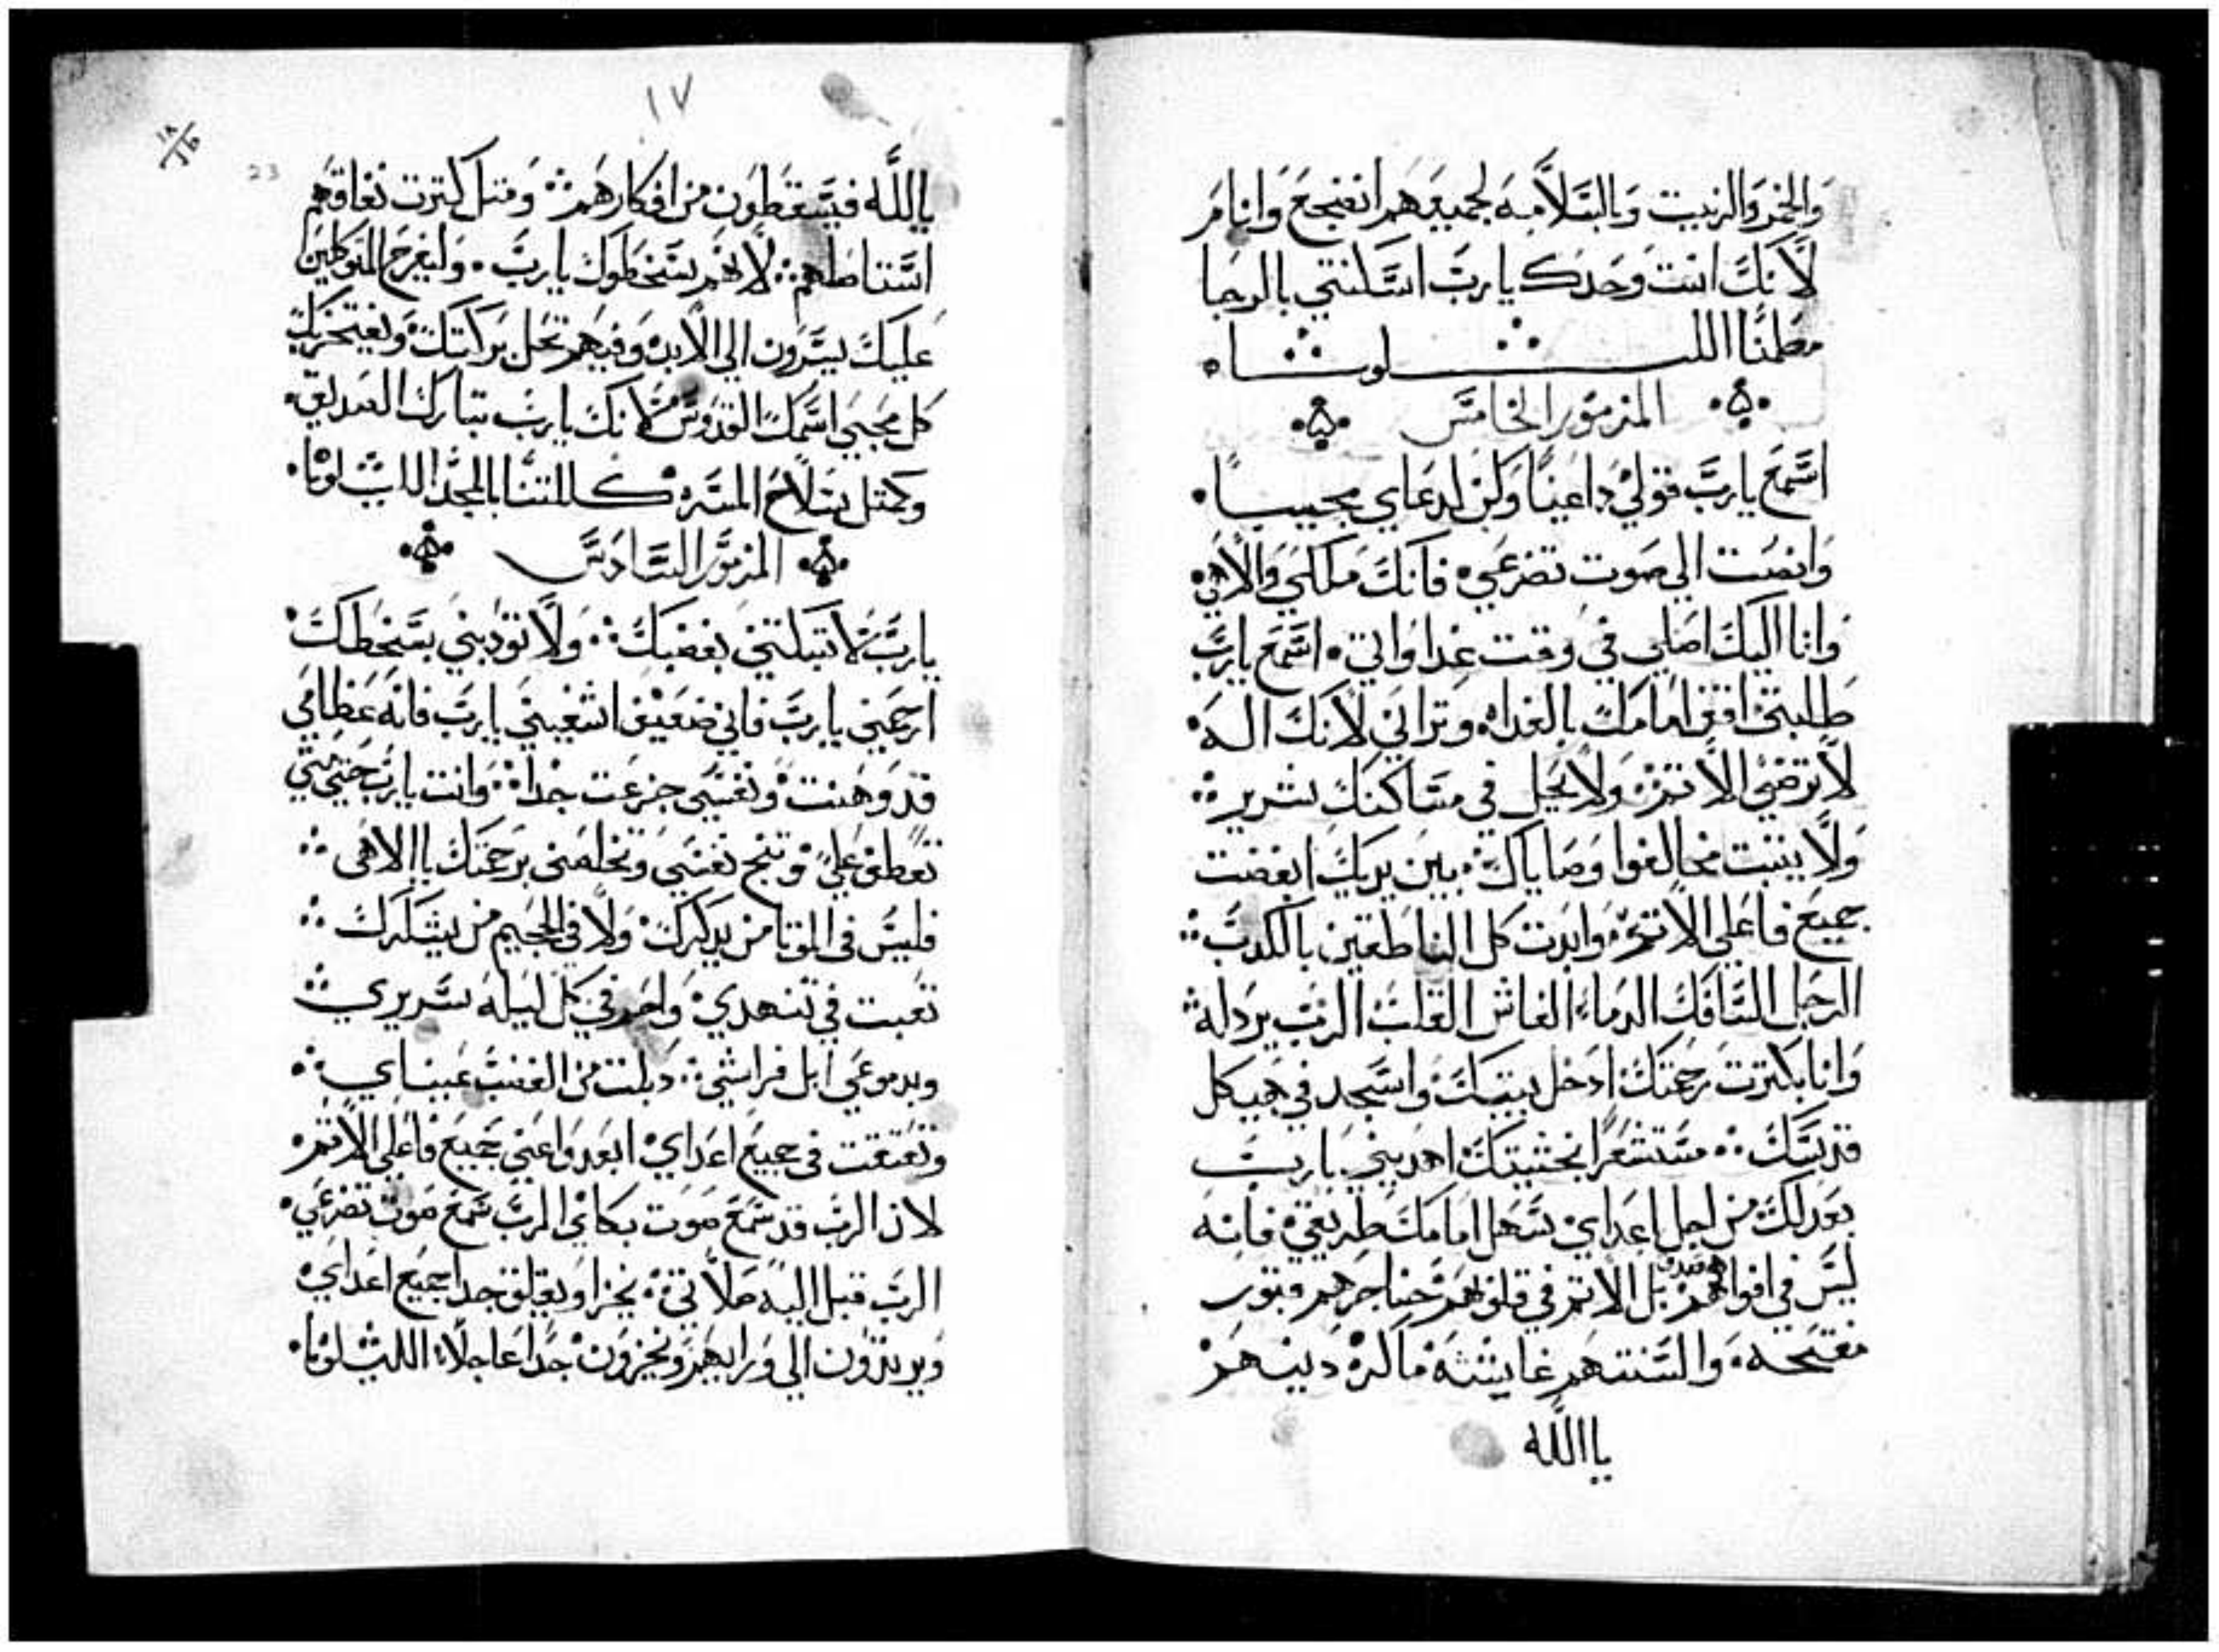 والخمر والزيت وبالسلامه لجميعهم انضجع وانام
لانك انت وحدك يارب اسكنتني بالرجا
مطمنا اللــــيلويا
المزمور الخامس
اسمع يارب قولي داعيا وكن لدعاي مجيبا
وانصت الي صوت تضرعي فانك ملكي والاهي
وانا اليك اصلي في وقت غداواتي اسمع يارب
طلبتي اقف امامك بالغداه وتراني لانك اله
لا ترضي الاتم ولا يحل في مساكنك شرير
ولا يتبت مخالفوا وصاياك بين يديك ابغضت
جميع فاعلي الاتم وابدت كل الناطقين بالكدب
الرجل السافك الدماء الغاش القلب الرب يردله
وانا بكترت رحمتك ادخل بيتك واسجد في هيكل
قدسك مستشعرا بخشيتك اهديني يارب
بعدلك من اجل اعداي سهل امامك طريقي فانه
ليس في افواههم صدق بل الاتم في قلوبهم حناجرهم قبور
مفتحه والسنتهم غاشه دينهم
ياالله
١٧
١٨
23
ياالله فيسقطون من افكارهم ومتل كترت نفاقهم
استاصلهم لانهم يسخطوك يارب وليفرح المتوكلين
عليك يسرون الي الابد وفيهم تحل بركتك ويفتخر بك
كل محبي اسمك القدوس لانك يارب تبارك الصديق
وكمتل سلاح المسره كللتنا بالمجد الليلويا
المزمور السادس
يارب لا تبكتني بغضبك ولا تودبني بسخطك
ارحمني يارب فاني ضعيف اشفيني يارب فانه عظامي
قد وهنت ونفسي جزعت جدا وانت يارب حتي متي
تعطف علي وتنج نفسي وتخلصني برحمتك ياالاهي
فليس في الموتا من يدكرك ولا في الجحيم من يشكرك
تعبت في تنهدي واحم في كل ليله سريري
وبدموعي ابل فراشي دبلت من الغضب عيناي
وتعتقت في جميع اعداي ابعدوا عني جميع فاعلي الاتم
لان الرب قد سمع صوت بكاي الرب سمع صوت تضرعي
الرب قبل اليه صلاتي يخزا ويقلق جدا جميع اعداي
ويرتدون الي ورايهم ويخزون جدا عاجلا الليلويا